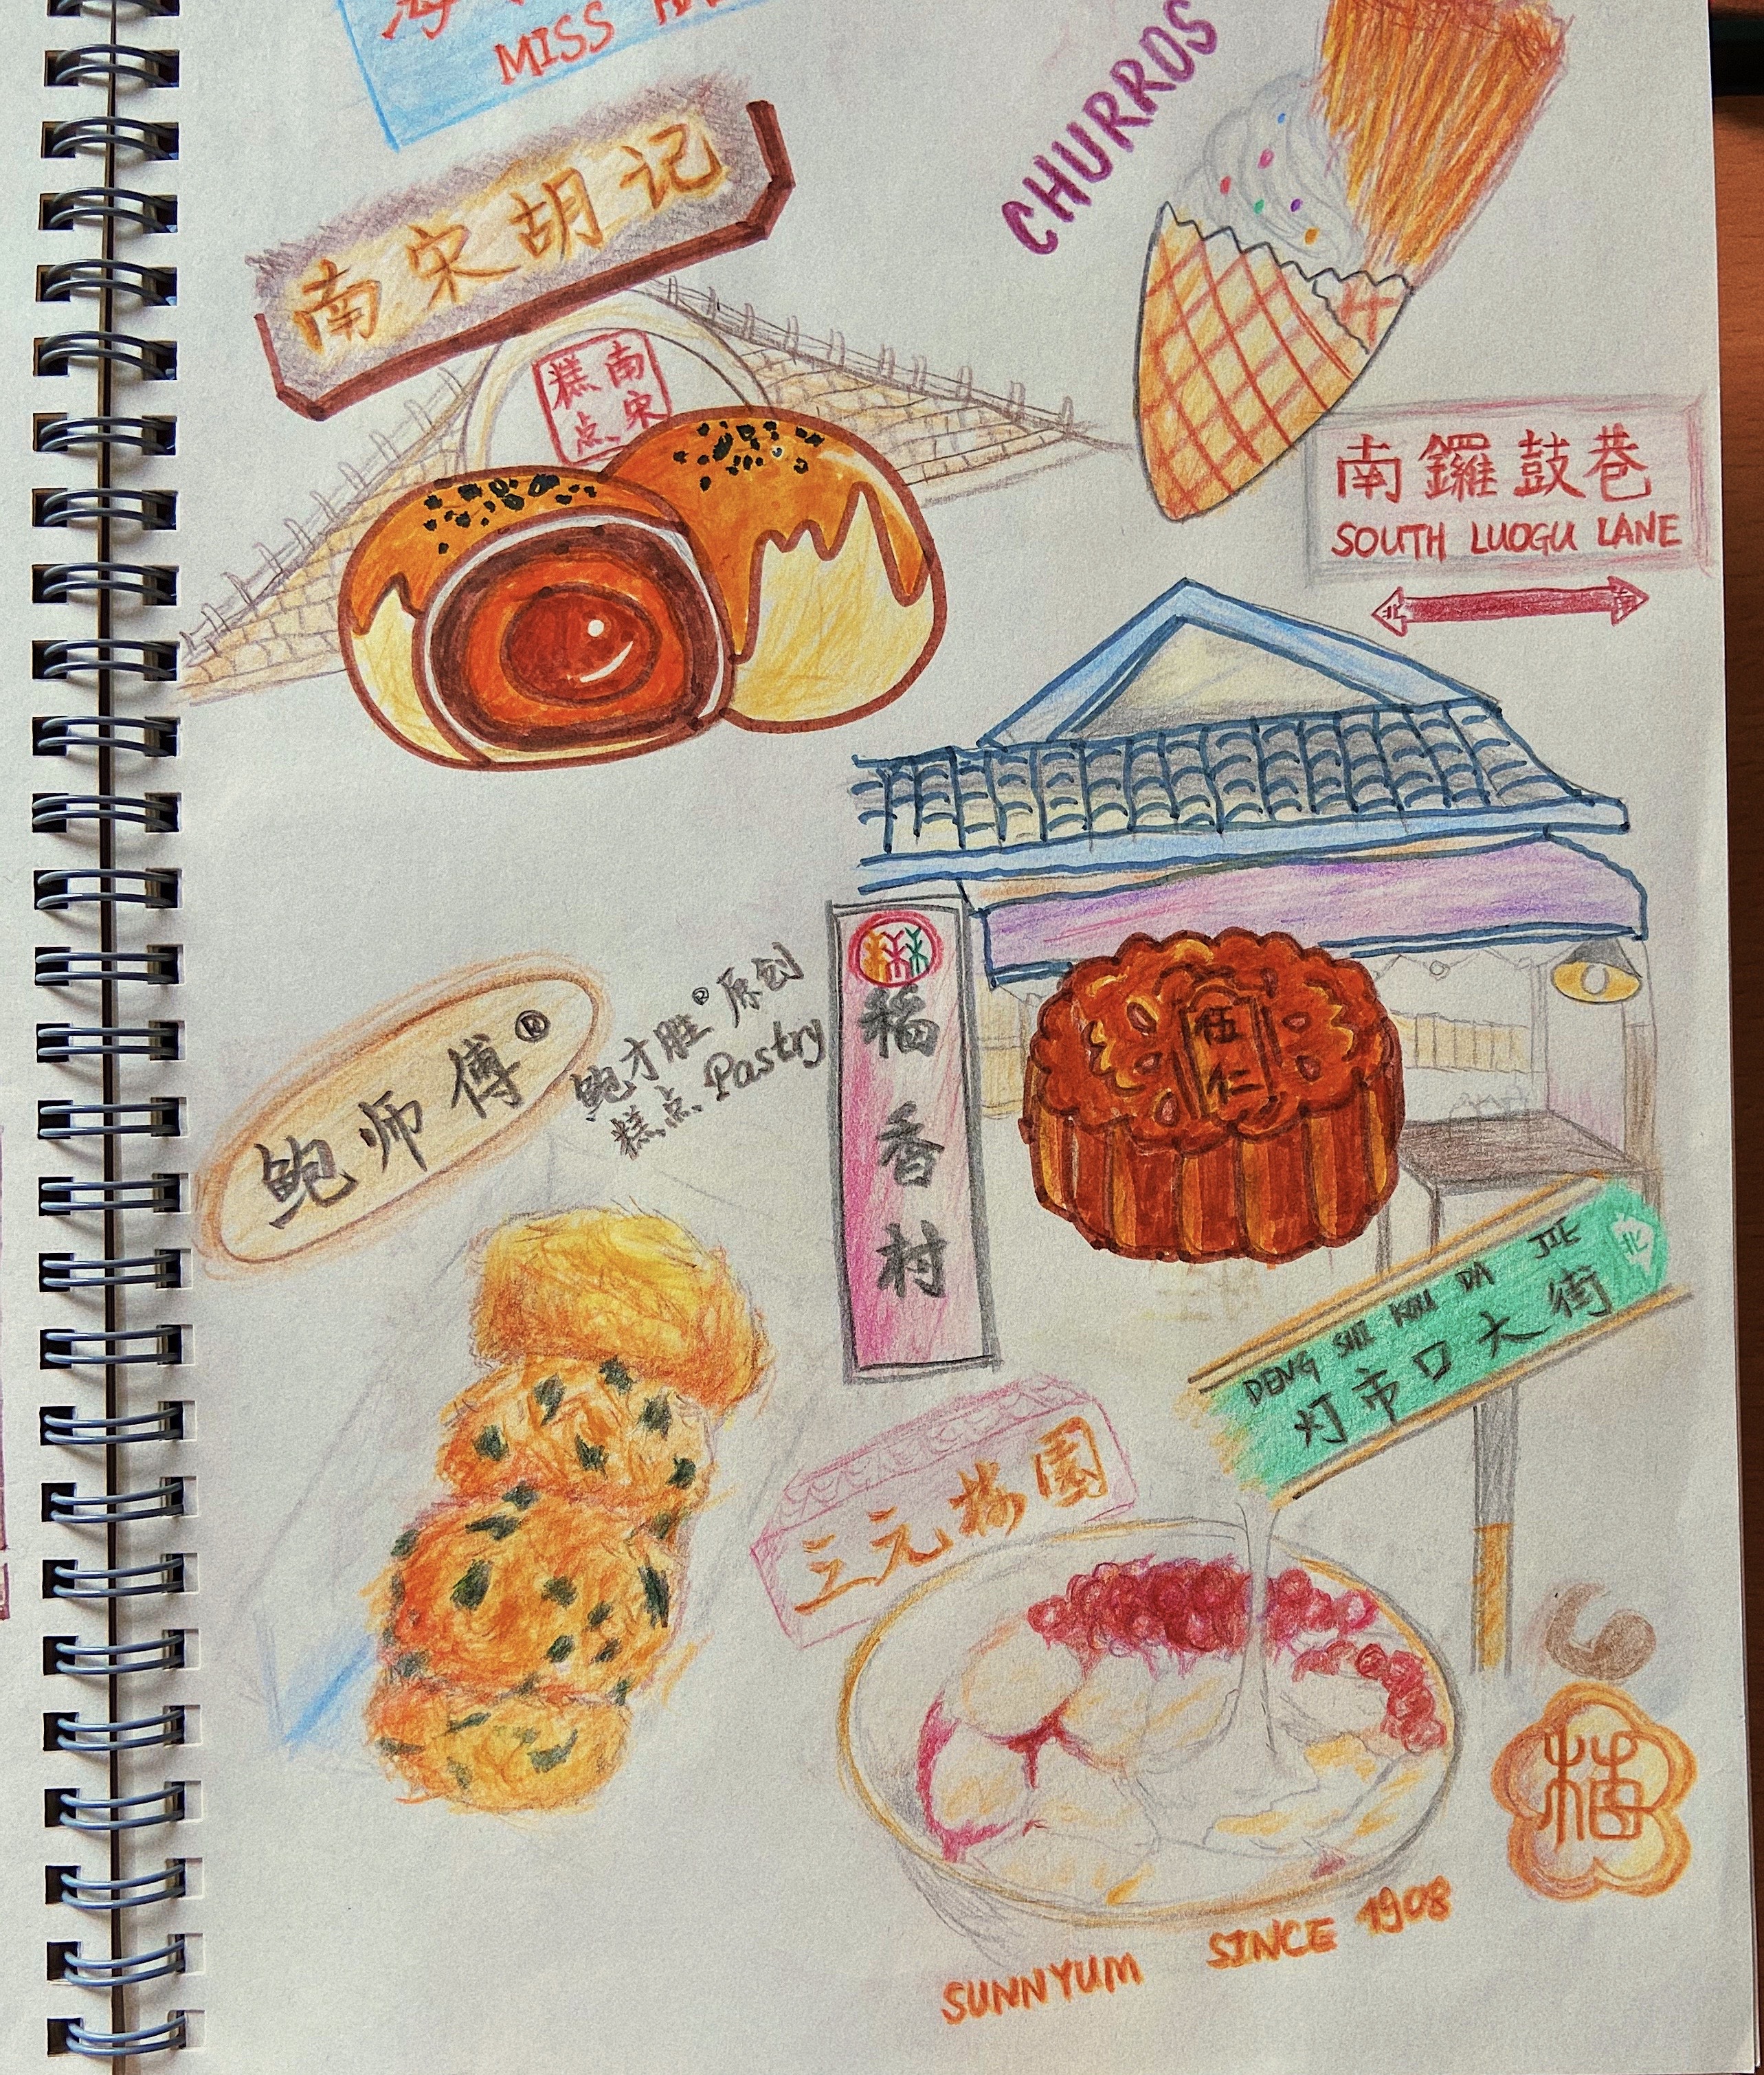 MISS
CHURROS
南宋胡记
南宋
糕点
南鑼鼓巷
SOUTH LUOGU LANE
北 南
稻香村
伍仁
鲍师傅®
鲍才胜® 原创
糕点 Pastry
DENG SHI KOU DA JIE
灯市口大街
北
三元梅園
SUNNYUM SINCE 1908